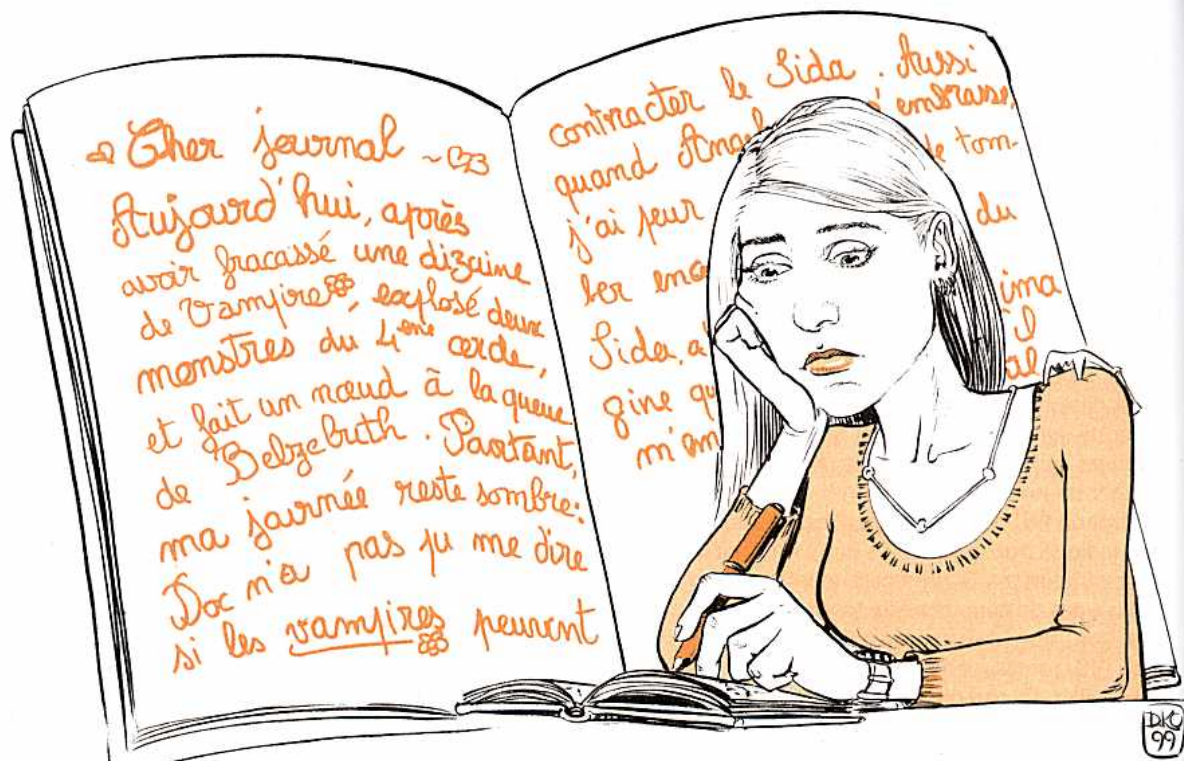 Cher journal
Aujourd'hui, après
avoir fracassé une dizaine
de Vampires, explosé deux
monstres du 4ème cercle,
et fait un nœud à la queue
de Belzebuth. Partant,
ma journée reste sombre:
Doc n'a pas pu me dire
si les vampires peuvent
contracter le Sida. Aussi
quand embrasse,
j'ai peur de tom-
ber du
Sida, ima
gine il
DKC
99